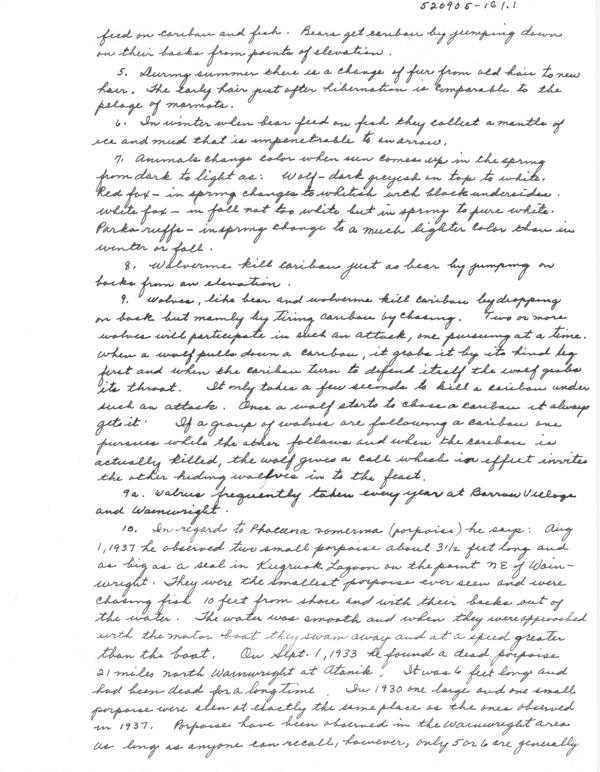 520905-161.1
feed on caribou and fish. Bears get caribou by jumping down
on their backs from points of elevation.
5. During summer there is a change of fur from old hair to new
hair. The early hair just after hibernation is comparable to the
pelage of marmots.
6. In winter when bear feed on fish they collect a mantle of
ice and mud that is impenetrable to an arrow.
7. Animals change color when sun comes up in the spring
from dark to light as: Wolf - dark greyish on top to white.
Red fox - in spring changes to whitish with black undersides.
White fox - in fall not too white but in spring to pure white.
Parka ruffs - in spring change to a much lighter color than in
winter or fall.
8. Wolverine kill caribou just as bear by jumping on
backs from an elevation.
9. Wolves, like bear and wolverine kill caribou by dropping
on back but mainly by tiring caribou by chasing. Two or more
wolves will participate in such an attack, one pursuing at a time.
When a wolf pulls down a caribou, it grabs it by its hind leg
first and when the caribou turn to defend itself the wolf grabs
its throat. It only takes a few seconds to kill a caribou under
such an attack. Once a wolf starts to chase a caribou it always
gets it. If a group of wolves are following a caribou one
pursues while the other follows and when the caribou is
actually killed, the wolf gives a call which in effect invites
the other hiding wolves in to the feast.
9a. Walrus frequently taken every year at Barrow Village
and Wainwright.
10. In regard to Phocaena vomerina (porpoise) he says: Aug
1, 1937 he observed two small porpoise about 3 1/2 feet long and
as big as a seal in Kugruak Lagoon on the point NE of Wain-
wright. They were the smallest porpoise ever seen and were
chasing fish 10 feet from shore and with their backs out of
the water. The water was smooth and when they were approached
with the motor boat they swam away and at a speed greater
than the boat. On Sept. 1, 1933 he found a dead porpoise
21 miles north Wainwright at Atanik. It was 6 feet long and
had been dead for a long time. In 1930 one large and one small
porpoise were seen at exactly the same place as the ones observed
in 1937. Porpoise have been observed in the Wainwright area
as long as anyone can recall; however, only 5 or 6 are generally